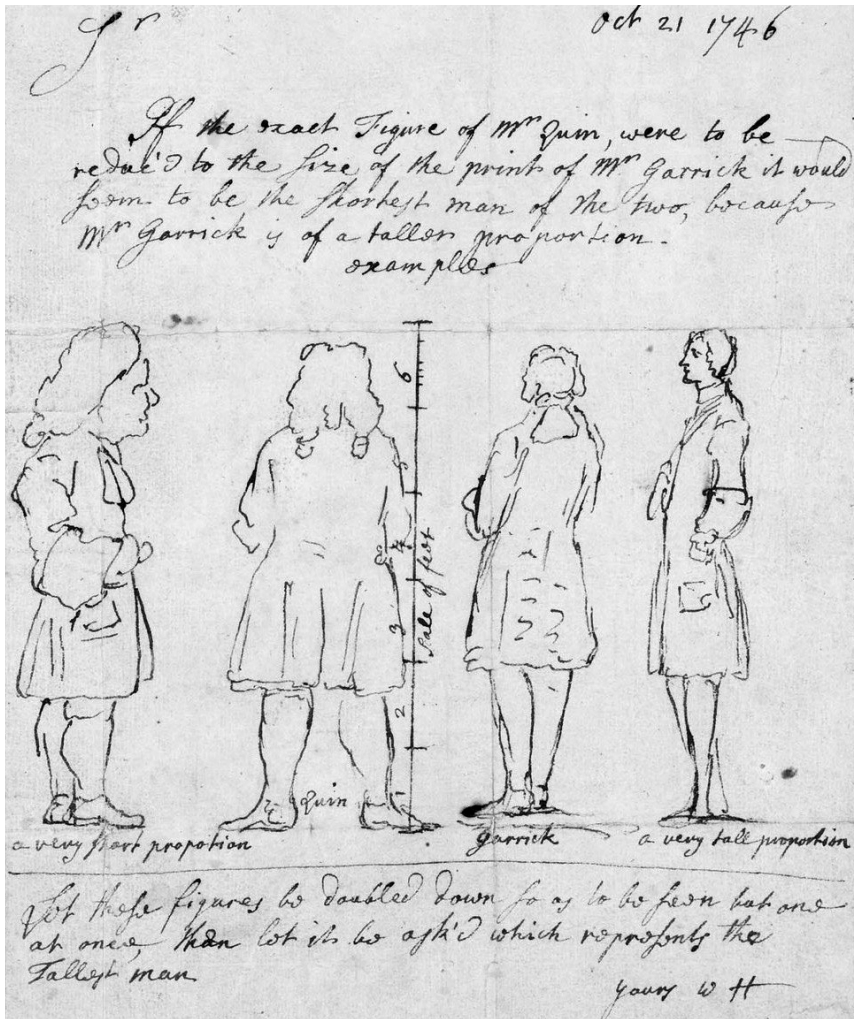 Sr
Oct 21 1746
If the exact Figure of Mr Quin, were to be
reduc'd to the size of the print of Mr Garrick it would
seem to be the shortest man of the two, because
Mr Garrick is of a taller proportion.
examples
6
5
4
3
2
1
Scale of feet
Quin
a very short propotion
Garrick
a very tall proportion
Let these figures be doubled down so as to be seen but one
at once, then let it be ask'd which represents the
Tallest man
yours W H